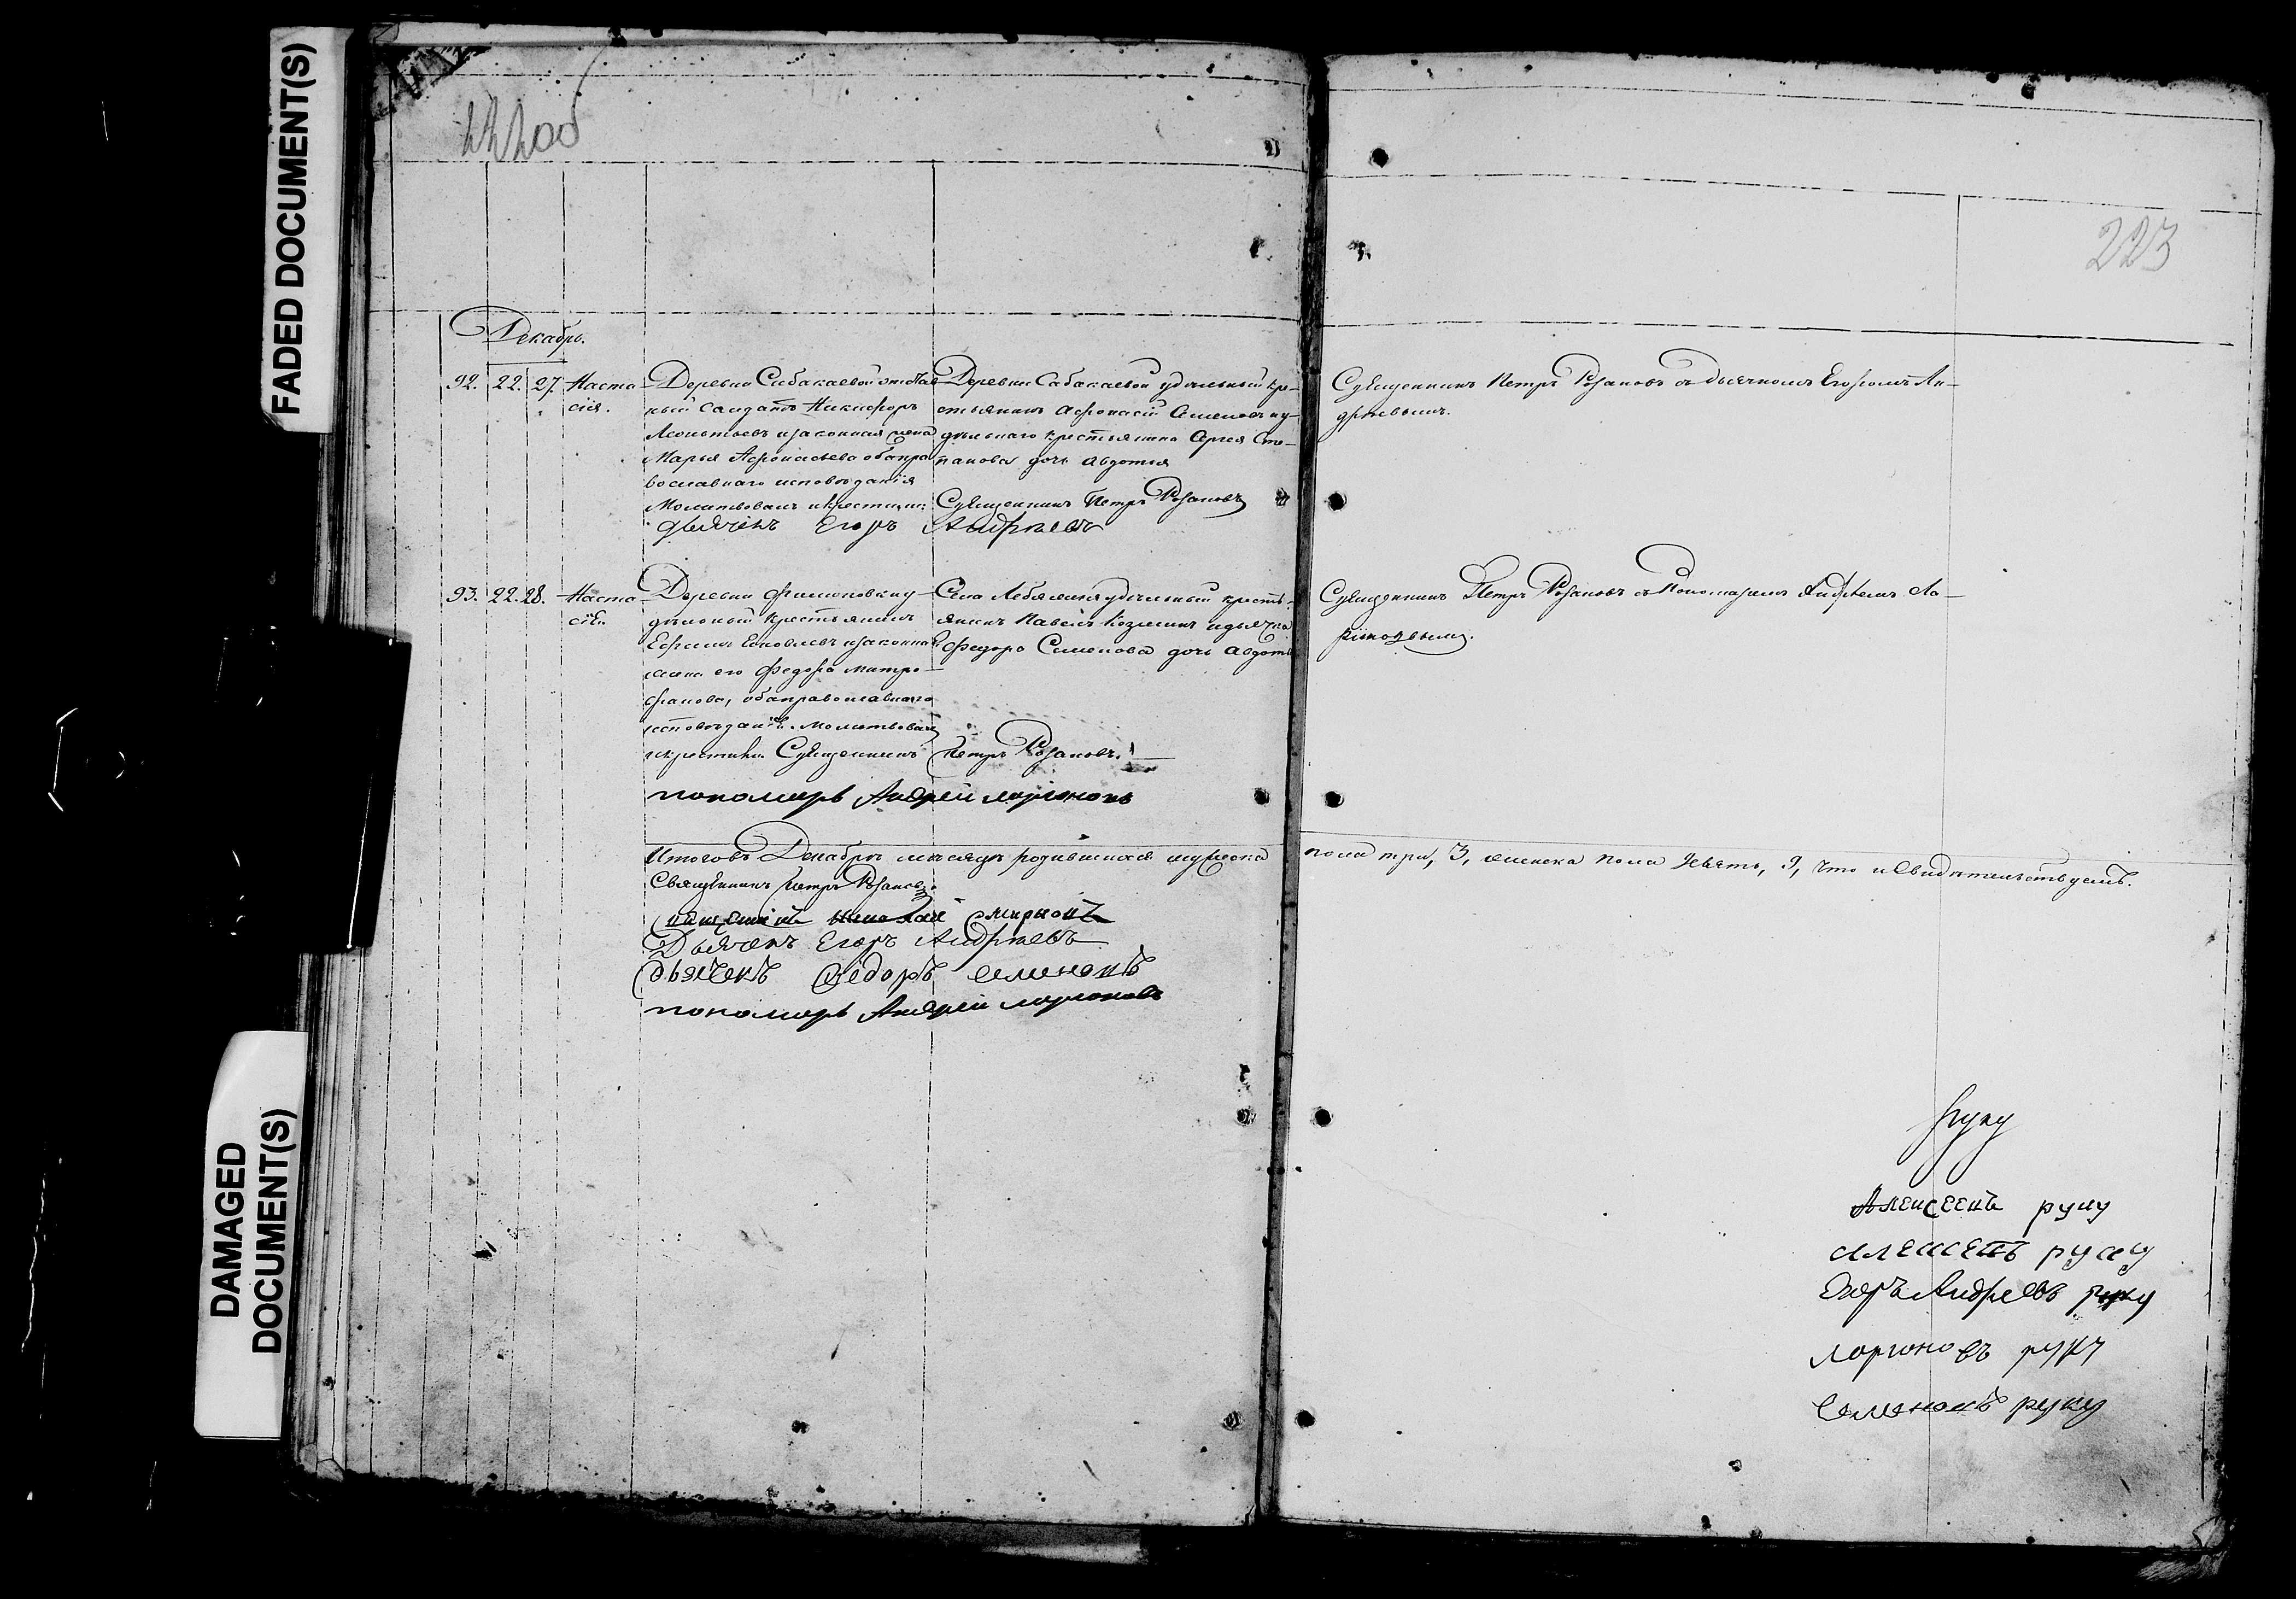 FADED DOCUMENT(S)
DAMAGED
DOCUMENT(S)
223
Декабрь.
92. 22. 27. Наста
сія.
Деревни Сабакаевой отстав
ный салдатъ Никифоръ
Леонтьевъ изаконная жена
Марья Афонасьева оба пра
вославнаго исповѣданія
Молитвовалъ и крестилъ:
Дьячекъ Егоръ Андрѣевъ
Деревни Сабакаевой удѣльный кре-
стьянинъ Афонасій Семеновъ и у-
дѣльнаго крестьянина Сте-
панова дочь Авдотья
Священникъ Петръ Розановъ
Священникъ Петръ Розановъ съ дьячкомъ Егоромъ Ан-
дрѣевымъ.
93. 22. 28. Наста
сія.
Деревни Филиповки у
дѣльный крестьянинъ
Ефимъ Яковлевъ изаконная
жена его Федора Митро-
фанова, оба православнаго
исповѣданія. Молитвовалъ
икрестилъ Священникъ Петръ Розановъ.
пономарь Андрей Ларіоновъ
Села Лебяжья удѣльный кресть-
янинъ Павелъ Козминъ и дьячка
Федора Семенова дочь Авдотья
Священникъ Петръ Розановъ съ Пономаремъ Андреемъ Ла-
ріоновымъ.
Итого въ Декабрѣ мѣсяцѣ родившихся мужеска пола три, 3, женска пола девять, 9, что и свидѣтельствуемъ.
Священникъ Петръ Розановъ
Священникъ Николай Смирновъ
Дьячекъ Егоръ Андрѣевъ
Дьячекъ Федоръ Семеновъ
пономарь Андрей Ларіоновъ
руку
Алексеевъ руку
Алексеевъ руку
Егоръ Андреевъ руку
Ларионовъ руку
Семеновъ руку